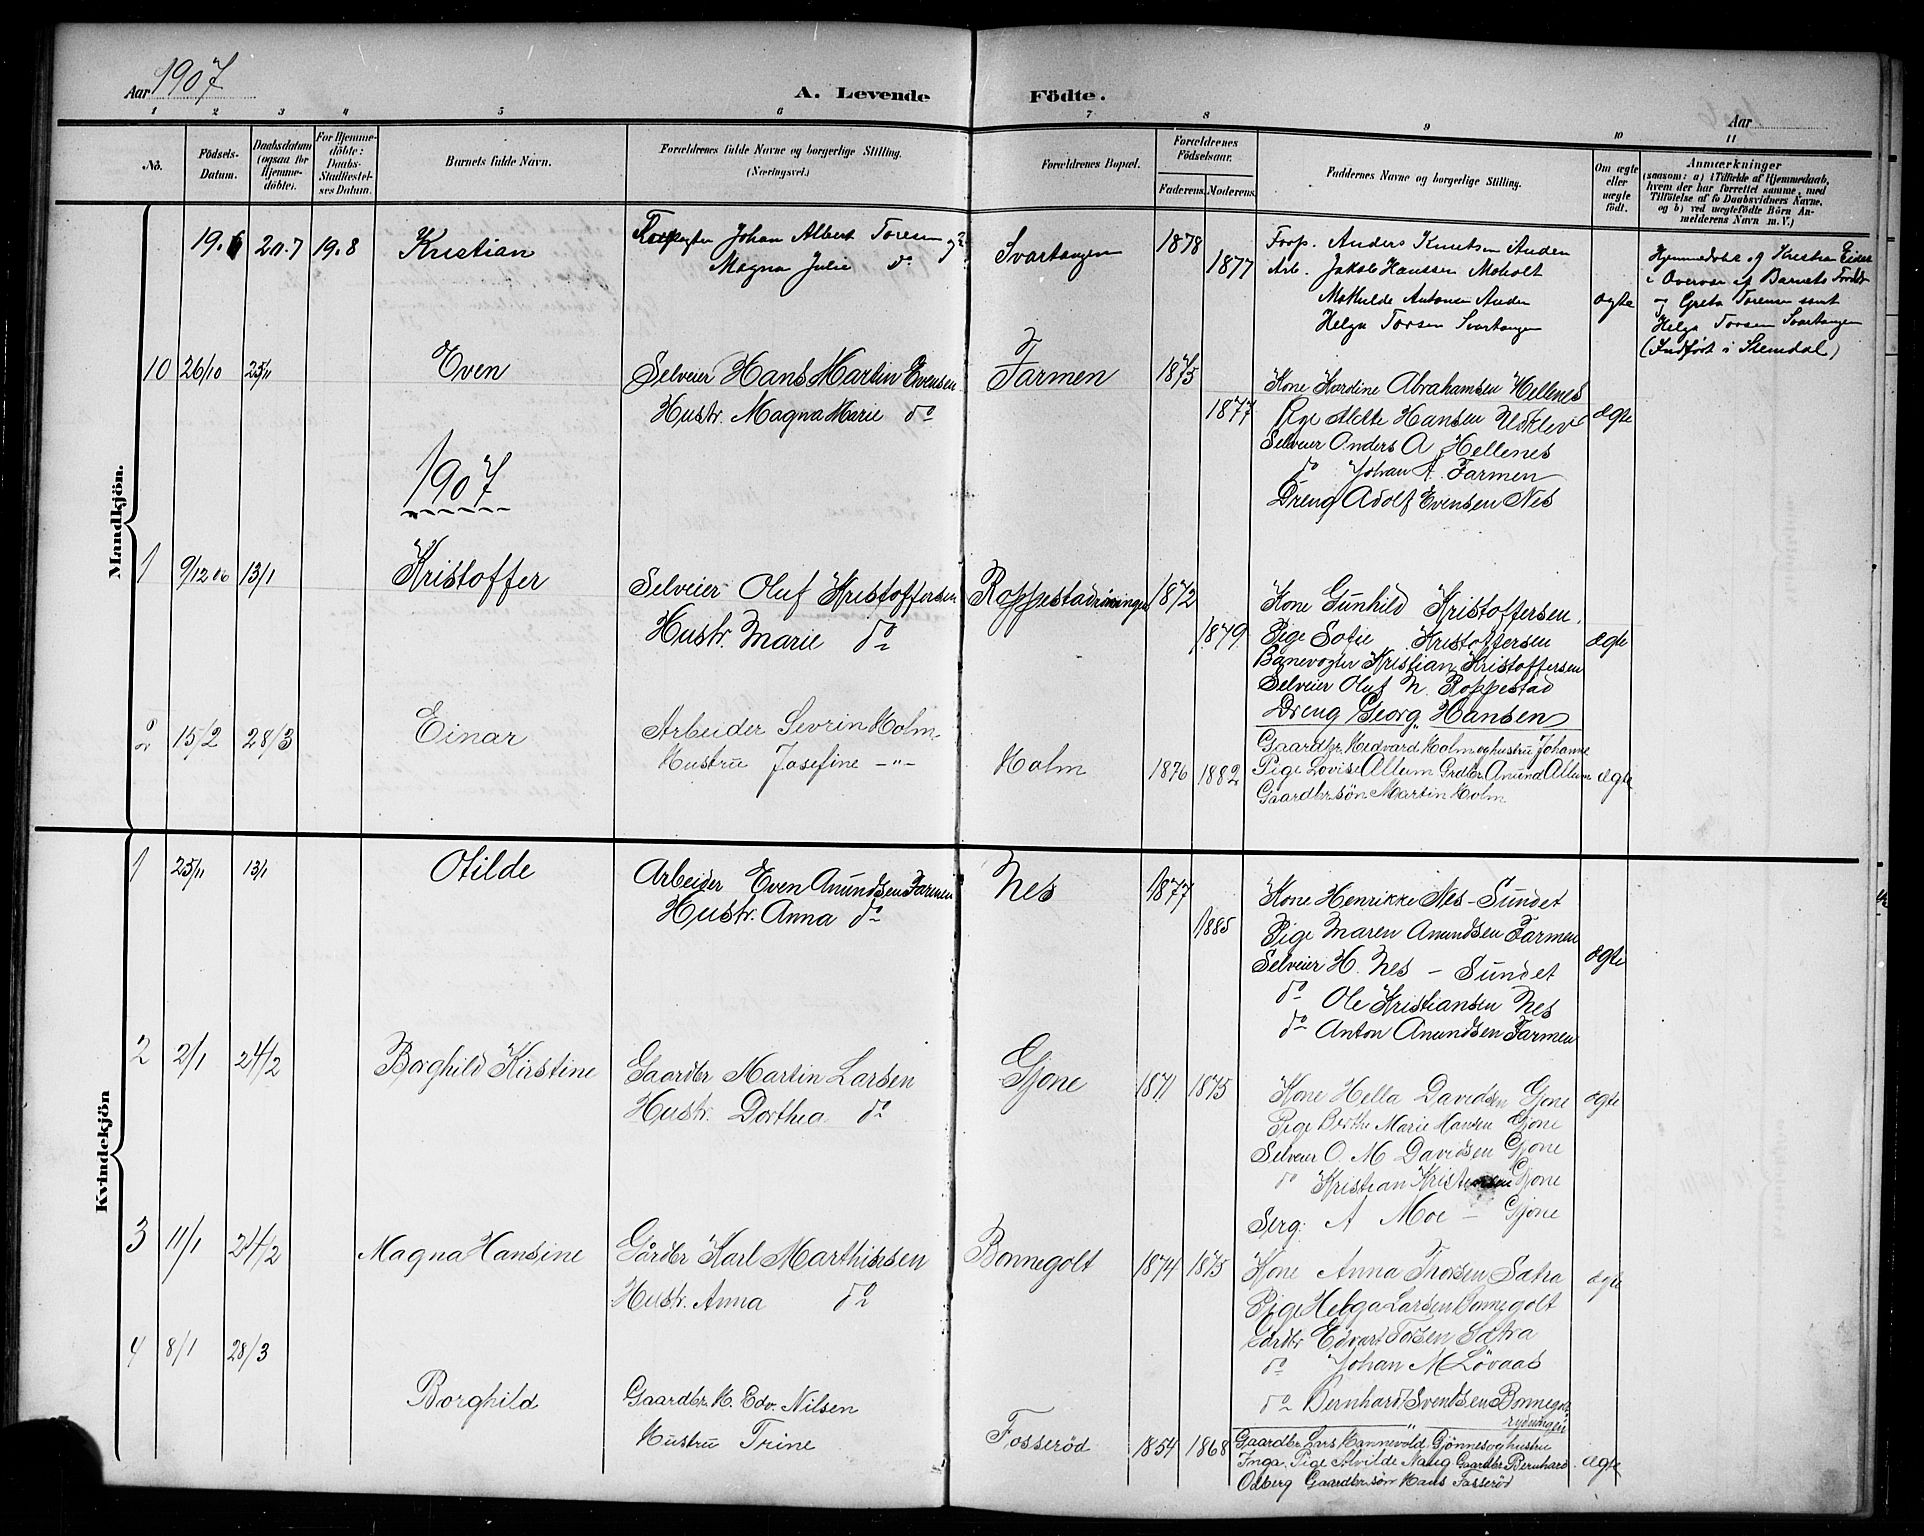 Aar 1907
A. Levende Födte.
Aar
1 2 3 4 5 6 7 8 9 10 11
No.
Födsels-Datum.
Daabsdatum (ogsaa for Hjemme-döbte).
For Hjemme-döbte: Daabs-Stadfæstel-ses Datum.
Barnets fulde Navn.
Forældrenes fulde Navne og borgerlige Stilling. (Næringsvei.)
Forældrenes Bopæl.
Forældrenes Födselsaar.
Faderens. Moderens.
Faddernes Navne og borgerlige Stilling.
Om ægte eller uægte födt.
Anmærkninger
(saasom: a) i Tilfælde af Hjemmedaab, hvem der har forrettet samme, med Tilföielse af to Daabsvidners Navne, og b) ved uægtefödte Börn An-melderens Navn m. V.)
Mandkjön.
19.6 20.7 19.8 Kristian
Johan Albert Toresen og
Magna Julie do
Svartangen 1878 1877
Forp. Anders Knutsen Anden
Arb. Jakob Hanssen Moholt
Mathilde Antonsen Anden
Helga Torsen Svartangen
ægte
Hjemmedøbt af Kristian
i Overvær af Barnets
og Greta Torensen samt
Helga Torsen Svartangen
(Indført i Stemdal)
10 26/10 25/11 Even
Selveier Hans Martin Evensen
Hustr. Magna Marie do
Farmen 1875 1877
Kone Kardine Abrahamsen Hellenes
Pige Aldte Hansen Udklev
Selveier Anders A Hellenes
do Johan A. Farmen
Dreng Adolf Evensen Nes
ægte
1907
1 9/12 06 13/1 Kristoffer
Selveier Oluf Kristoffersen
Hustr. Marie do
Roppestadrønningen 1872 1879.
Kone Gunhild Kristoffersen.
Pige Sofie Kristoffersen
Banevogter Kristian Kristoffersen
Selveier Oluf N. Roppestad
Dreng Georg Hansen
ægte
2 15/2 28/3 Einar
Arbeider Sevrin Holm
Hustru Josefine -"-
Holm 1876 1882
Gaardbr. Hedvard Holm og hustru Johanne
Pige Lovise Allum Grdbr. Anund Allum
Gaardbr.søn Martin Holm
ægte
Kvindekjön
1 25/11 13/1 Otilde
Arbeider Even Anundsen Farmen
Hustr. Anna do
Nes 1877 1885
Kone Henrikke Nes - Sundet
Pige Maren Anundsen Farmen
Selveier H. Nes - Sundet
do Ole Kristiansen Nes
do Anton Anundsen Farmen
ægte
2 2/1 24/2 Borghild Kirstine
Gaardbr Martin Larsen
Hustr. Dorthea do
Gjone 1871 1875
Kone Hella Davidsen Gjone
Pige Berthe Marie Hansen Gjone
Selveier O. M Davidsen Gjone
do Kristian Kristensen Gjone
Serg. A Moe - Gjone
ægte
3 11/1 24/2 Magna Hansine
Gårdbr Karl Marthinsen
Hustr. Anna do
Bonnegolt 1874 1875
Kone Anna Thorsen Satra
Pige Helga Larsen Bonnegolt
Gårdbr Edvart Torsen Satra
do Johan M Løvaas
do Bernhard Svendsen Bonnegolt
rydningen
ægte
4 8/1 28/3 Borghild
Gaardbr. H. Edv. Nilsen
Hustru Trine
Fosserød 1854 1868
Gaardbr. Lars Hannevold Gjønnes og hustru
Inga. Pige Alvilde Naug Gaardbr Bernhard
Odberg Gaardbr.søn Hans Fosserød
ægte